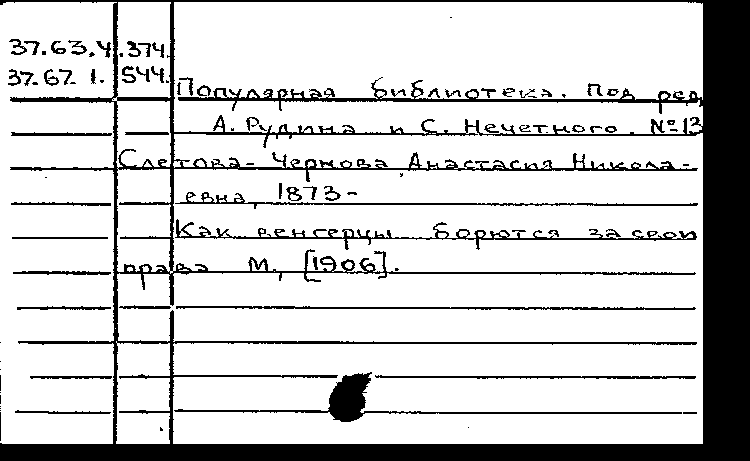 37.63.4.374.
37.67.1.544.
Популярная библиотека. Под ред.
А. Рудина и С. Нечетного. №13
Слетова-Чернова Анастасия Никола-
евна, 1873-
Как венгерцы борются за свои
права М., [1906].